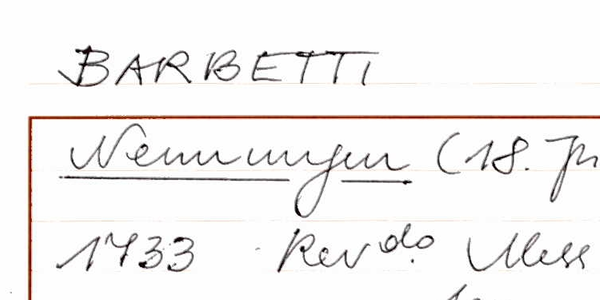 BARBETTI
Nenningen (18. Jh
1733 Rev do. Mess